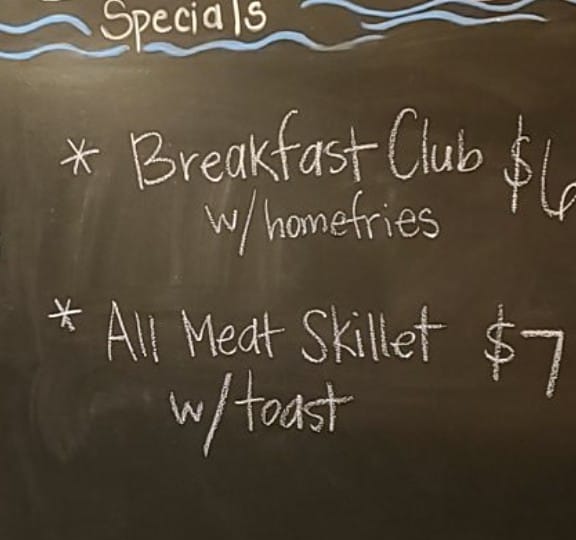 Specials
* Breakfast Club $6
w/homefries
* All Meat Skillet $7
w/toast